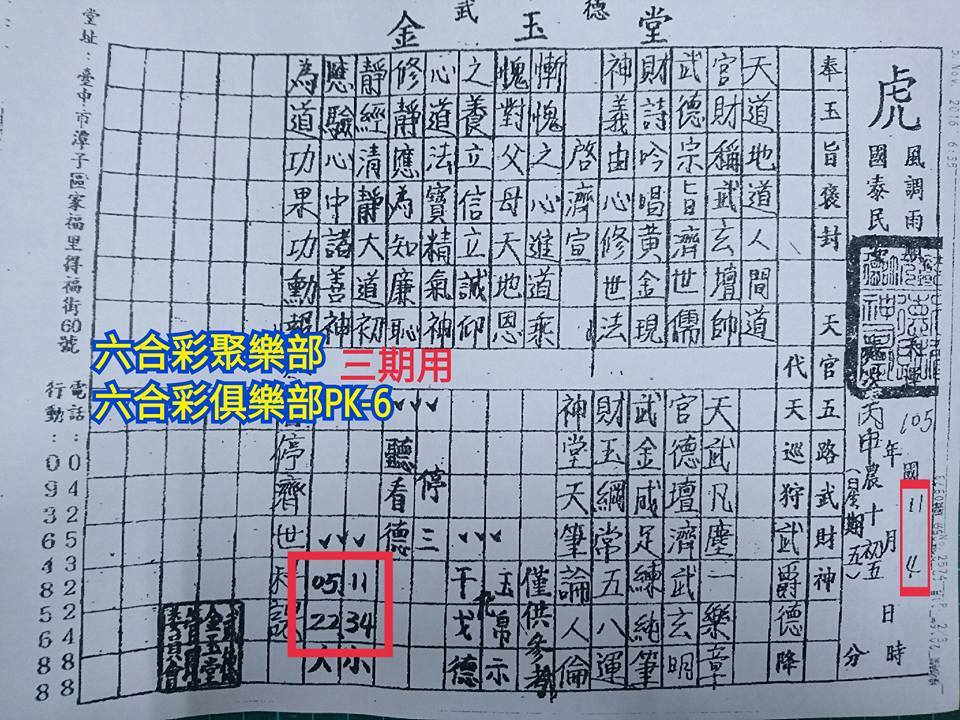 武德
金玉堂
虎
風調雨
國泰民
105年國11月4日時
丙申農十月初五
(星期五)
分
奉玉旨褒封
天官五路武財神
代天巡狩武爵德降
天道地道人間道
官財稱武玄壇帥
武德宗旨濟世儒
財詩吟唱黃金現
神義由心修世法
啓濟宣
慚愧之心進道乘
愧對父母天地恩
之養立信立誠仰
心道法寶精氣神
修靜應為知廉恥
靜經清靜大道初
應驗心中諸善神
為道功果功勳報
天武凡塵一樂章
官德壇濟武玄明
武金咸足練純筆
財玉綱常五八運
神堂天筆論人倫
僅供參考
玉帛示
化
干戈德
停三
聽看德
11 34 小
05 22 大
停濟世
六合彩聚樂部
三期用
六合彩俱樂部PK-6
堂址：臺中市潭子區家福里得福街60號
電話：
行動：